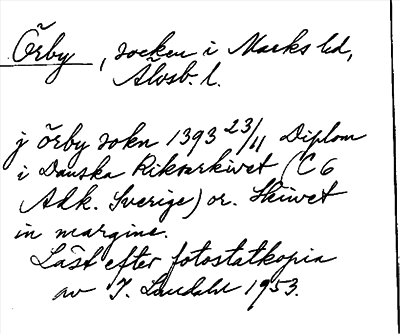 Örby, socken i Marks hd,
Älvsb. l.
j örby sokn 1393 23/11 Diplom
i Danska Riksarkivet (C 6
Adk. Sverige) or. Skrivet
in margine.
Läst efter fotostatkopia
av I. Lundahl 1953.